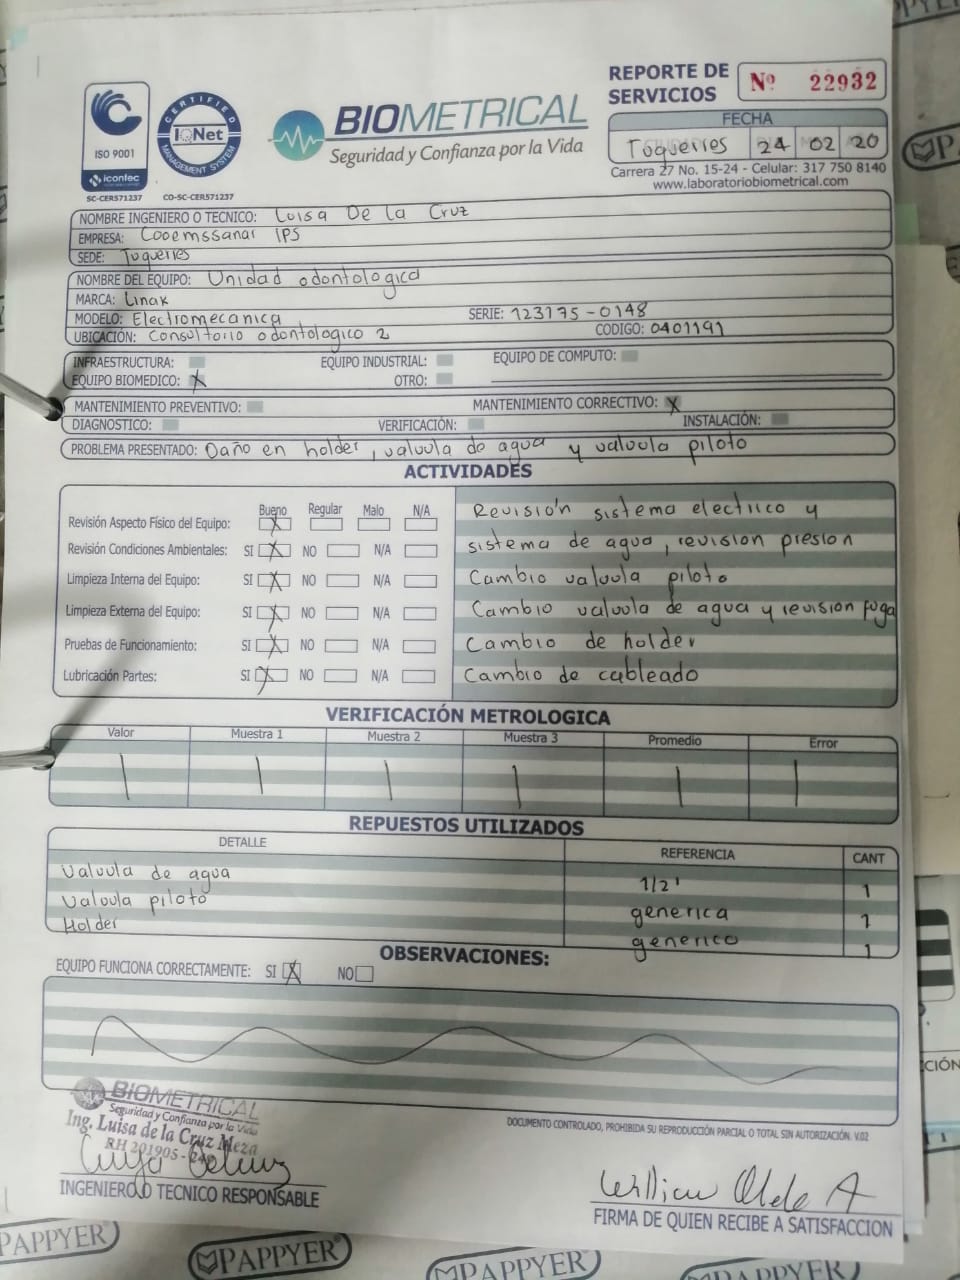 REPORTE DE SERVICIOS
Nº 22932
ISO 9001
icontec
SC-CER571237
CERTIFIED
IQNet
MANAGEMENT SYSTEM
CO-SC-CER571237
BIOMETRICAL
Seguridad y Confianza por la Vida
FECHA
Toquerres 24 02 20
Carrera 27 No. 15-24 - Celular: 317 750 8140
www.laboratoriobiometrical.com
NOMBRE INGENIERO O TECNICO: Luisa De la Cruz
EMPRESA: Cooemssanar IPS
SEDE: Tuquerres
NOMBRE DEL EQUIPO: Unidad odontologica
MARCA: Linak
MODELO: Electromecanica SERIE: 123175-0148
UBICACIÓN: Consultorio odontologico 2 CODIGO: 0401191
INFRAESTRUCTURA: EQUIPO INDUSTRIAL: EQUIPO DE COMPUTO:
EQUIPO BIOMEDICO: X OTRO:
MANTENIMIENTO PREVENTIVO: MANTENIMIENTO CORRECTIVO: X
DIAGNOSTICO: VERIFICACIÓN: INSTALACIÓN:
PROBLEMA PRESENTADO: Daño en holder, valvula de agua y valvula piloto
ACTIVIDADES
Bueno Regular Malo N/A
Revisión Aspecto Físico del Equipo: X
Revisión Condiciones Ambientales: SI X NO N/A
Limpieza Interna del Equipo: SI X NO N/A
Limpieza Externa del Equipo: SI X NO N/A
Pruebas de Funcionamiento: SI X NO N/A
Lubricación Partes: SI X NO N/A
Revisión sistema electrico y
sistema de agua, revision presion
Cambio valvula piloto
Cambio valvula de agua y revision fuga
Cambio de holder
Cambio de cableado
VERIFICACIÓN METROLOGICA
Valor Muestra 1 Muestra 2 Muestra 3 Promedio Error
REPUESTOS UTILIZADOS
DETALLE REFERENCIA CANT
Valvula de agua 1/2' 1
Valvula piloto generica 1
Holder generico 1
OBSERVACIONES:
EQUIPO FUNCIONA CORRECTAMENTE: SI X NO
BIOMETRICAL
Seguridad y Confianza por la Vida
Ing. Luisa de la Cruz Meza
DOCUMENTO CONTROLADO, PROHIBIDA SU REPRODUCCIÓN PARCIAL O TOTAL SIN AUTORIZACIÓN. V.02
INGENIERO O TECNICO RESPONSABLE
FIRMA DE QUIEN RECIBE A SATISFACCION
PAPPYER
PAPPYER
PAPPYER
PAPPYER